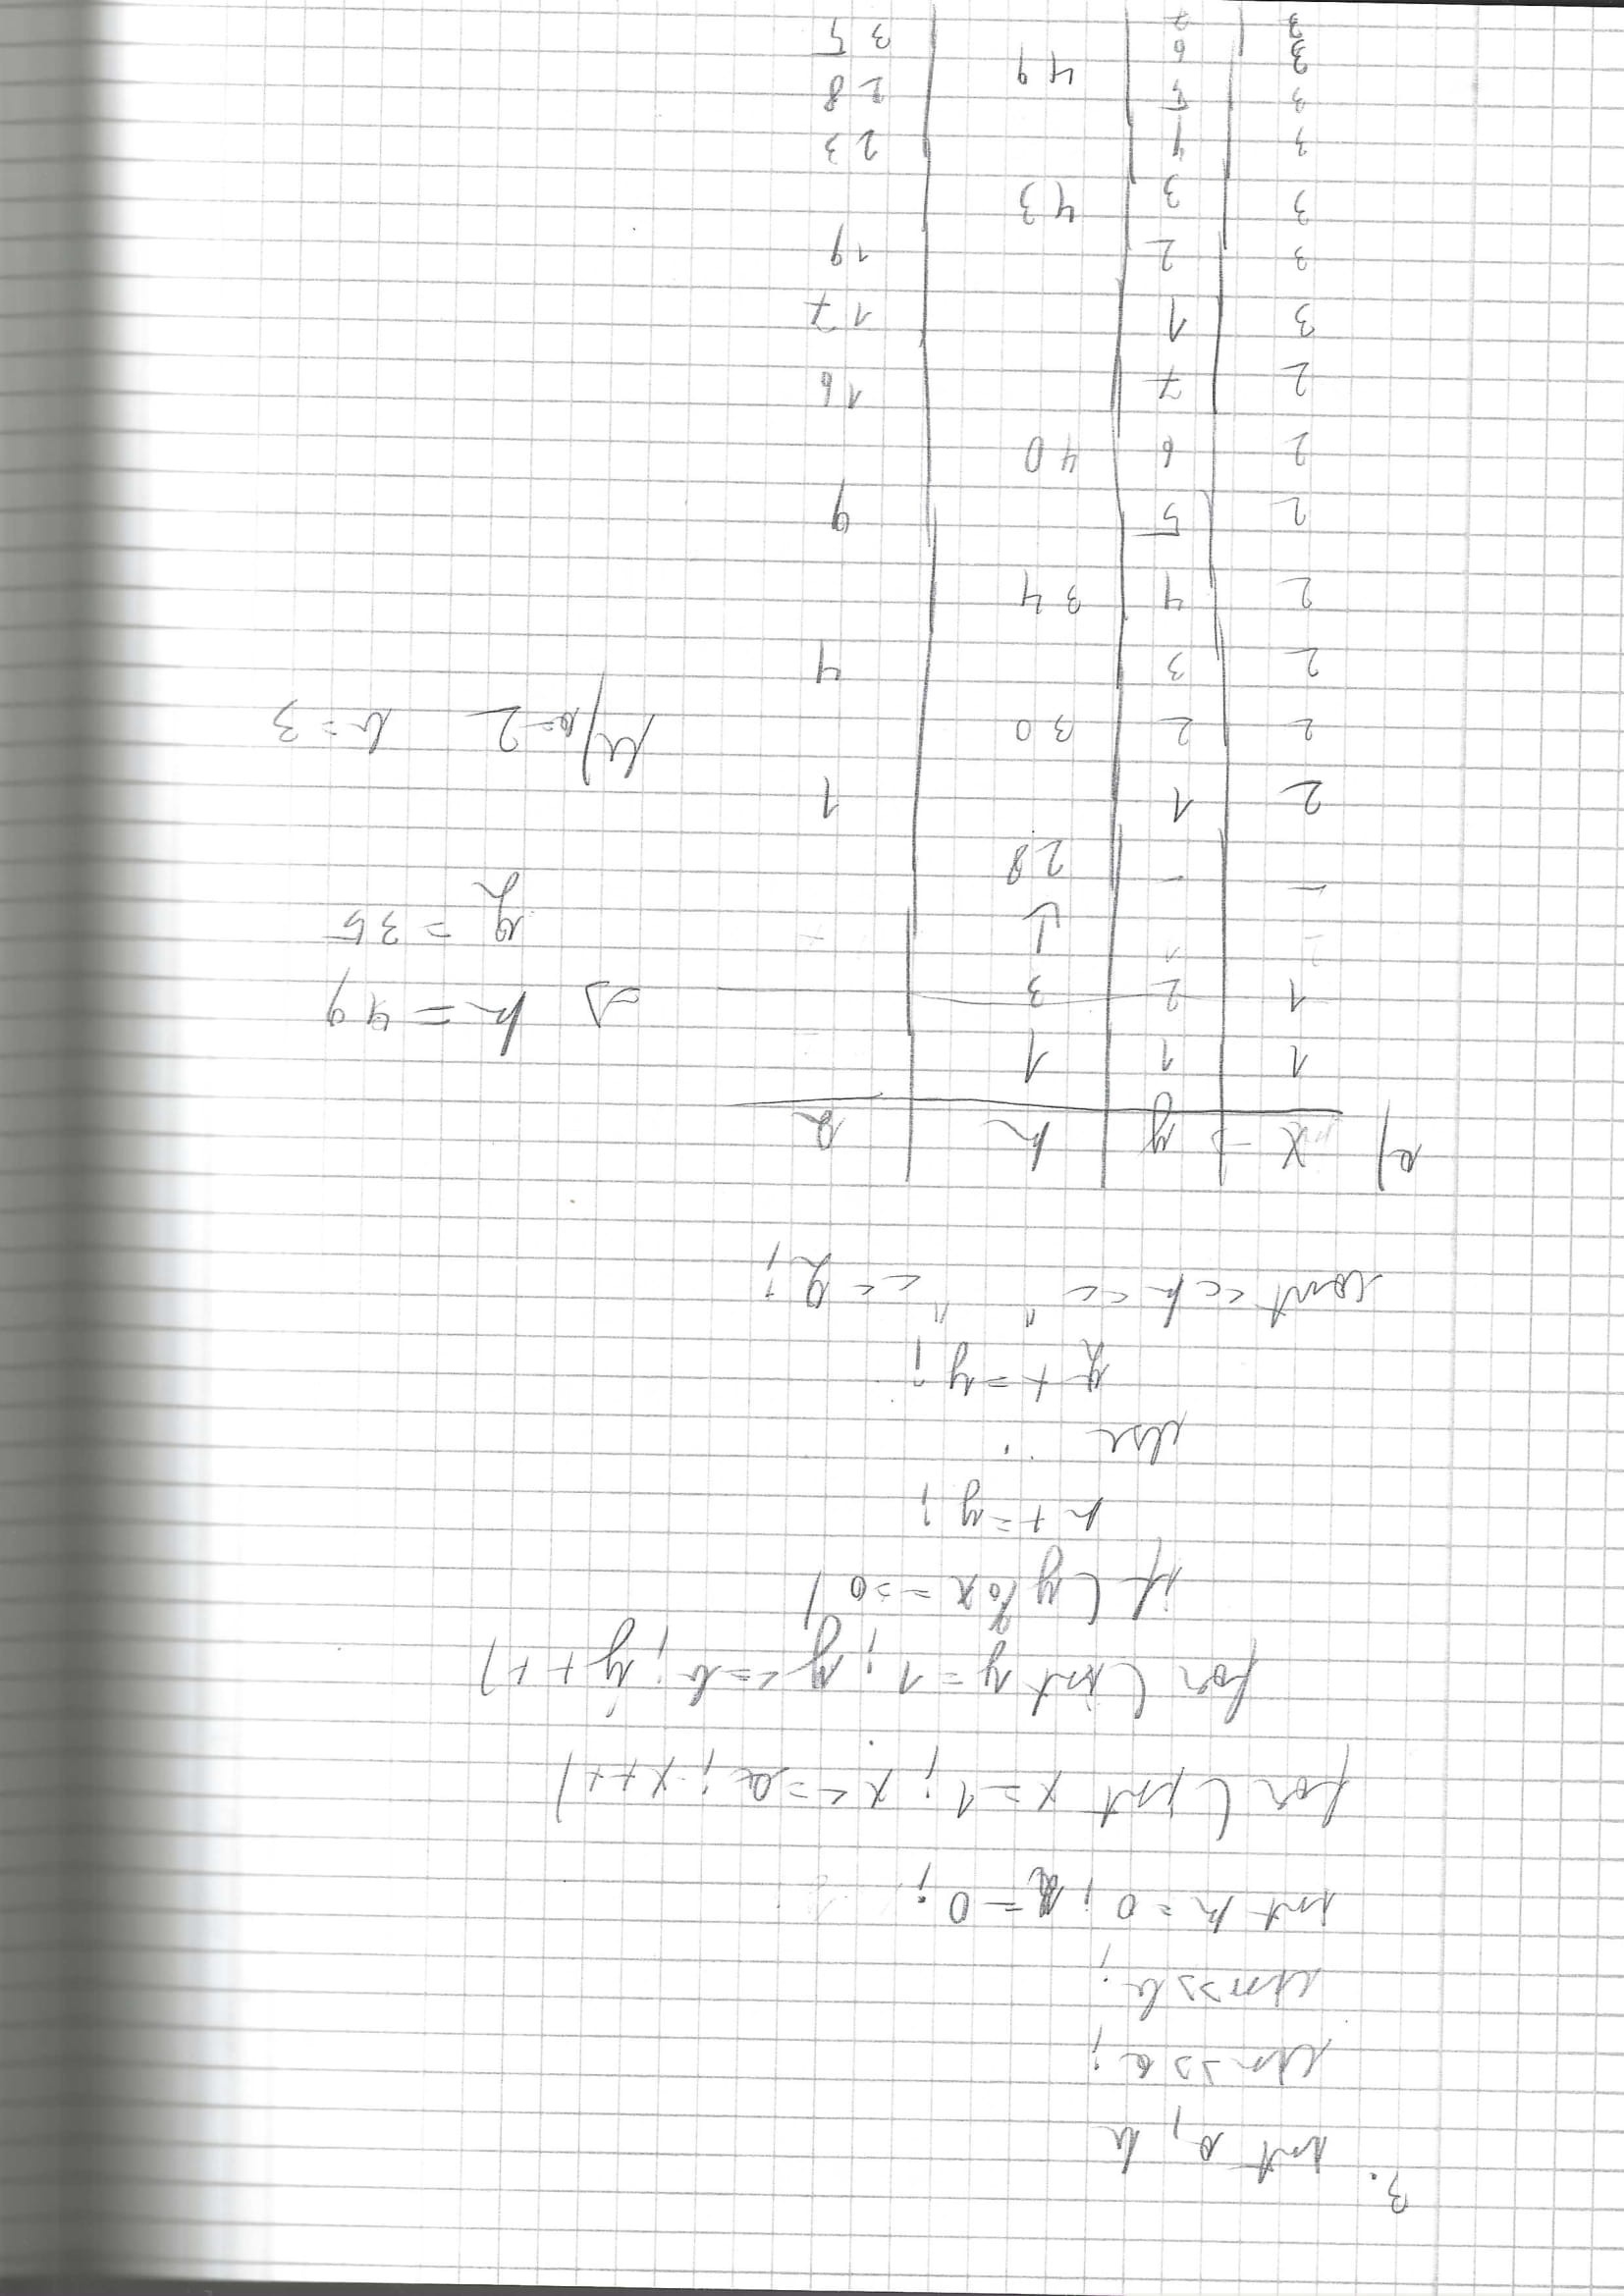 3.
int a, b
cin >> a;
cin >> b;
int h = 0; g = 0;
for (int x = 1; x <= a; x++)
for (int y = 1; y <= b; y++)
if (y % x == 0)
h += y;
else
g += y;
cout << h << " " << g;
a) x y h g
1 1 1
1 2 3 → h = 49
↓ g = 35
- - 28
2 1 1
2 2 30 b) a=2 b=3
2 3 4
2 4 34
2 5 9
2 6 40
2 7 16
3 1 17
3 2 19
3 3 43
3 4 23
3 5 28
3 6 49
3 7 35